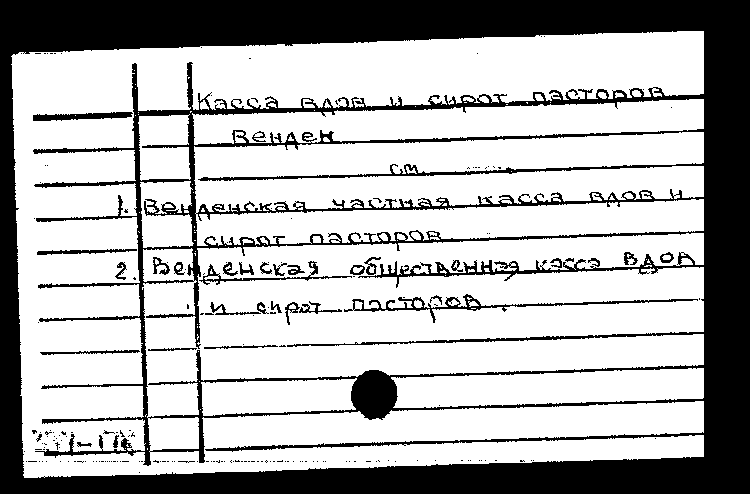 Касса вдов и сирот пасторов
Венден
см.
1. Венденская частная касса вдов и
сирот пасторов
2. Венденская общественная касса вдов
и сирот пасторов.